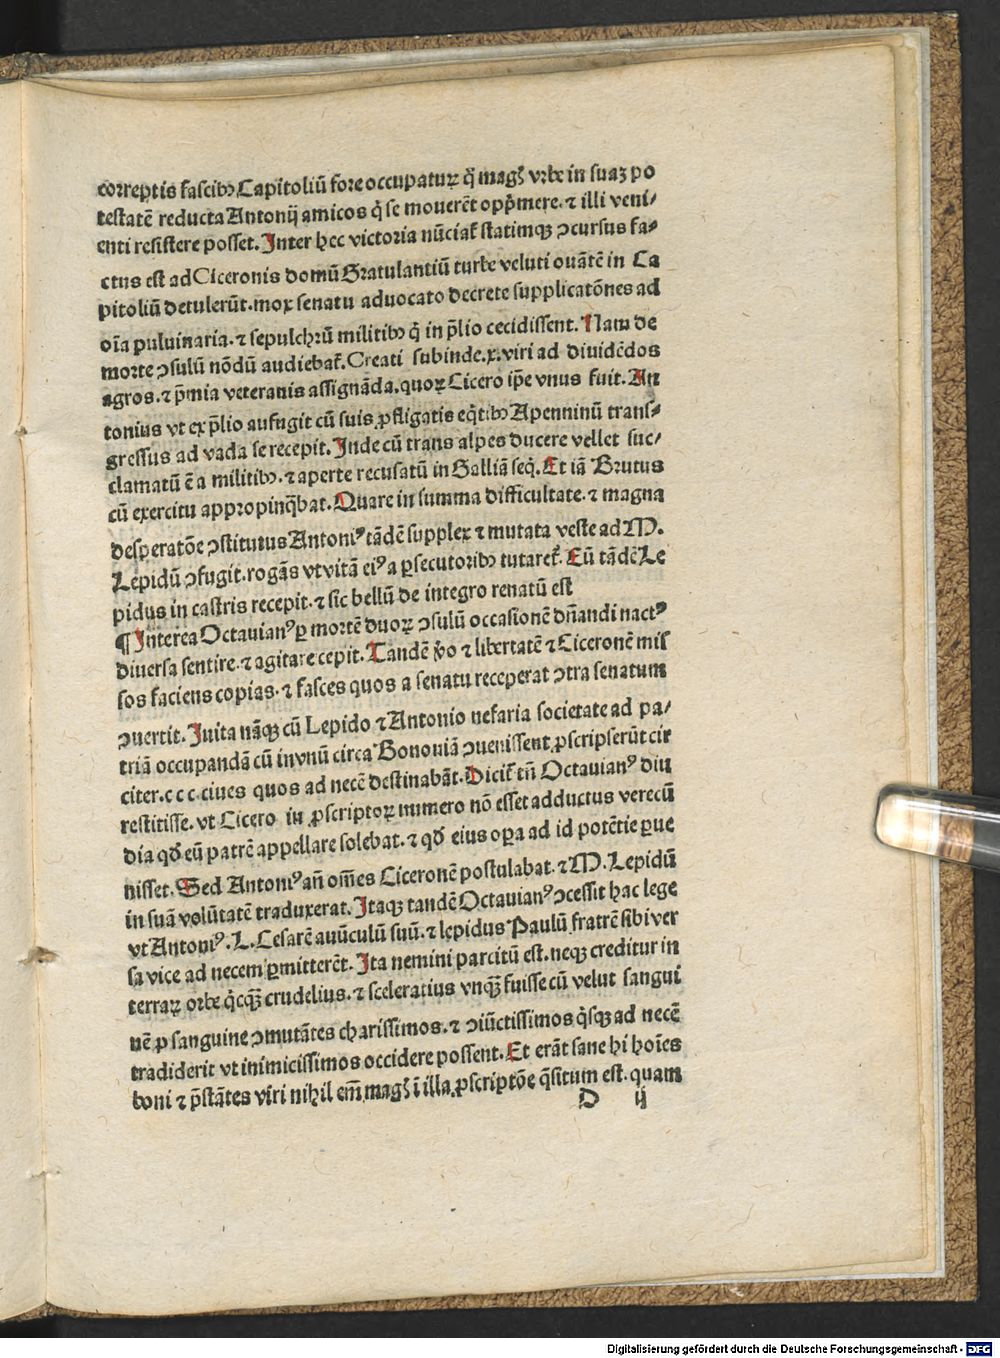 correptis fascibꝫ Capitoliū fore occupatuꝝ q̄ magꝭ vrbe in suaꝫ po
testatē reducta Antonij amicos q̇ se mouerēt opp̄mere. ⁊ illi veni⸗
enti resistere posset. Inter hec victoria nūciat̄ statimqꝫ ↄcursus fa⸗
ctus est ad Ciceronis domū Gratulantiū turbe veluti ouātē in Ca
pitoliū detulerūt. mox senatu aduocato decrete supplicatōnes ad
oīa puluinaria. ⁊ sepulchrū militibꝫ q̇ in p̄lio cecidissent. Nam de
morte ↄsulū nōdū audiebat̄. Creati subinde .x. viri ad diuidēdos
agros. ⁊ p̄mia veteranis assignāda. quoꝝ Cicero ip̄e vnus fuit. An
tonius vt ex p̄lio aufugit cū suis ꝓfligatis eq̇tibꝫ Apenninū trans⸗
gressus ad vada se recepit. Inde cū trans alpes ducere vellet suc⸗
clamatū ē a militibꝫ. ⁊ aperte recusatū in Galliā seq̇. Et iā Brutus
cū exercitu appropinq̄bat. Quare in summa difficultate. ⁊ magna
desperatōe ↄstitutus Antoniꝰ tādē supplex ⁊ mutata veste ad M.
Lepidū ↄfugit. rogās vt vitā eiꝰ a ꝑsecutoribꝫ tutaret̄. Eū tādē Le
pidus in castris recepit. ⁊ sic bellū de integro renatū est
¶ Interea Octauianꝰ ꝑ mortē duoꝝ ↄsulū occasionē dn̄andi nactꝰ
diuersa sentire. ⁊ agitare cepit. Tandē ṽo ⁊ libertatē ⁊ Ciceronē mis
sos faciens copias. ⁊ fasces quos a senatu receperat ↄtra senatum
ↄuertit. Inita nāqꝫ cū Lepido ⁊ Antonio nefaria societate ad pa⸗
triā occupandā cū in vnū circa Bononiā ↄuenissent ꝓscripserūt cir
citer. c c c. ciues quos ad necē destinabāt. Dicit̄ tn̄ Octauianꝰ diu
restitisse. vt Cicero in ꝓscriptoꝝ numero nō esset adductus verecū
dia qđ eū patrē appellare solebat. ⁊ qđ eius oꝑa ad id potētie ꝑue
nisset. Sed Antoniꝰ an̄ om̄es Ciceronē postulabat. ⁊ M. Lepidū
in suā volūtatē traduxerat. Itaqꝫ tandē Octauianꝰ ↄcessit hac lege
vt Antoniꝰ. L. Cesarē auūculū suū. ⁊ lepidus Paulū fratrē sibi ver
sa vice ad necem ꝑmitterēt. Ita nemini parcitū est. neqꝫ creditur in
terraꝝ orbe q̇cqꝫ̄ crudelius. ⁊ sceleratius vnqꝫ̄ fuisse cū velut sangui
nē ꝓ sanguine ↄmutātes charissimos. ⁊ ↄiūctissimos q̇sqꝫ ad necē
tradiderit vt inimicissimos occidere possent. Et erāt sane hi hoīes
boni ⁊ p̄stātes viri nihil em̄ magꝭ ī illa ꝓscriptōe q̄situm est. quam
D ij
Digitalisierung gefördert durch die Deutsche Forschungsgemeinschaft - DFG